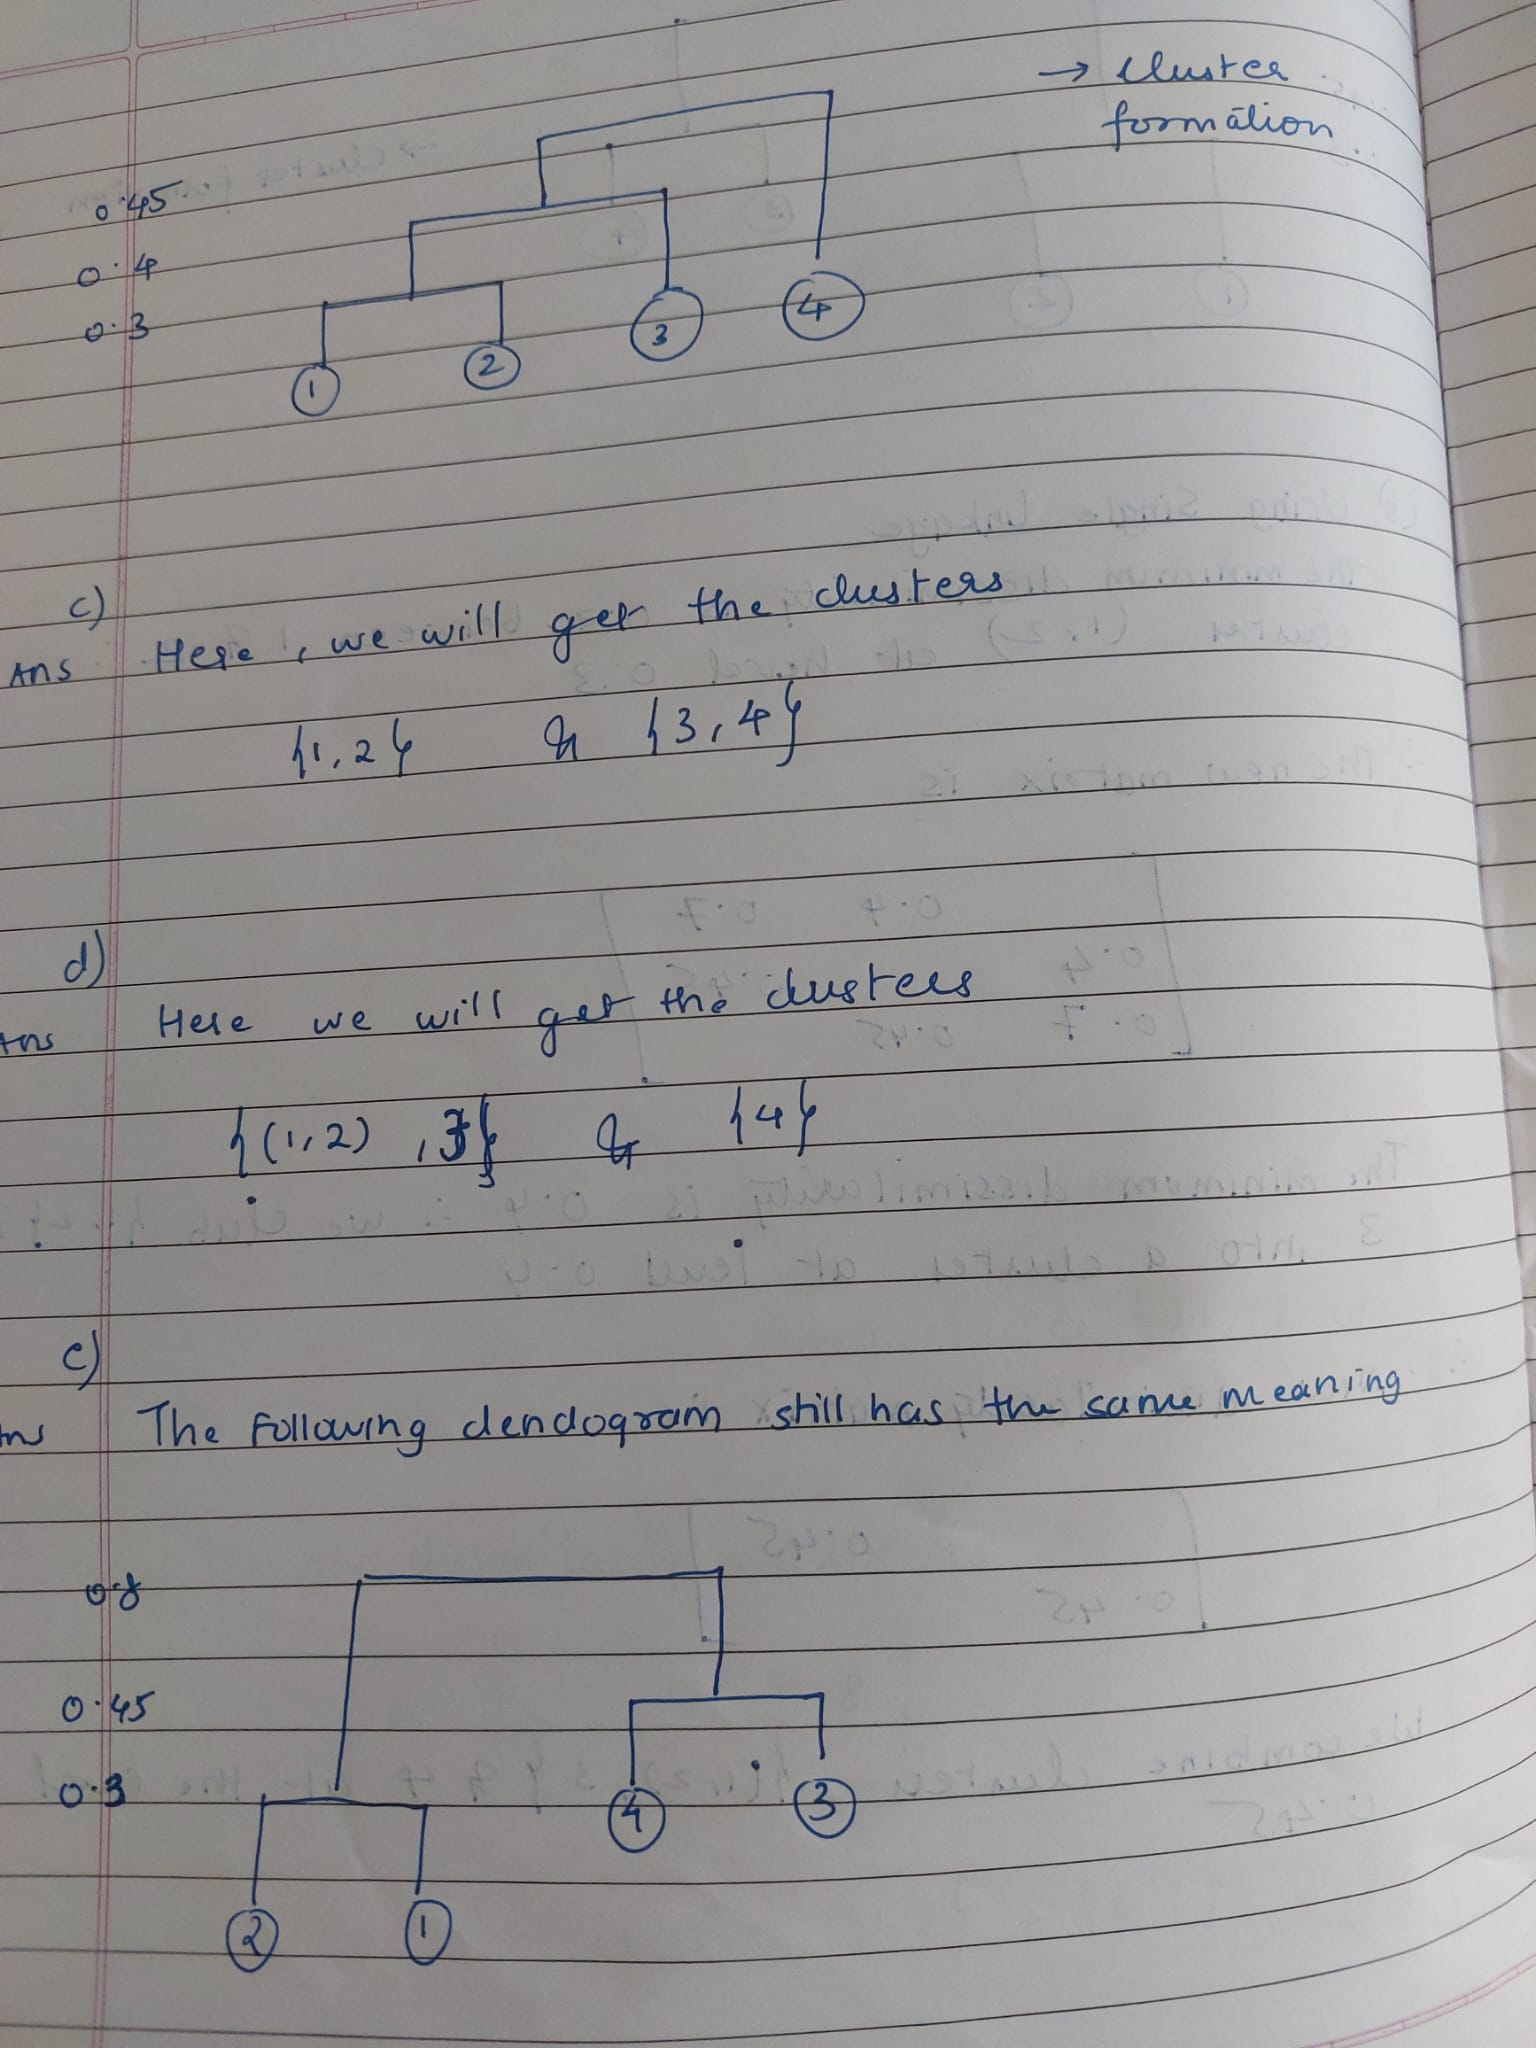 → cluster
formation
0.45
0.4
0.3
1 2 3 4
c)
Ans Here, we will get the clusters
{1,2} & {3,4}
d)
Ans Here we will get the clusters
{(1,2) ,3} & {4}
e)
Ans The following dendogram still has the same meaning
0.8
0.45
0.3
4 3
2 1